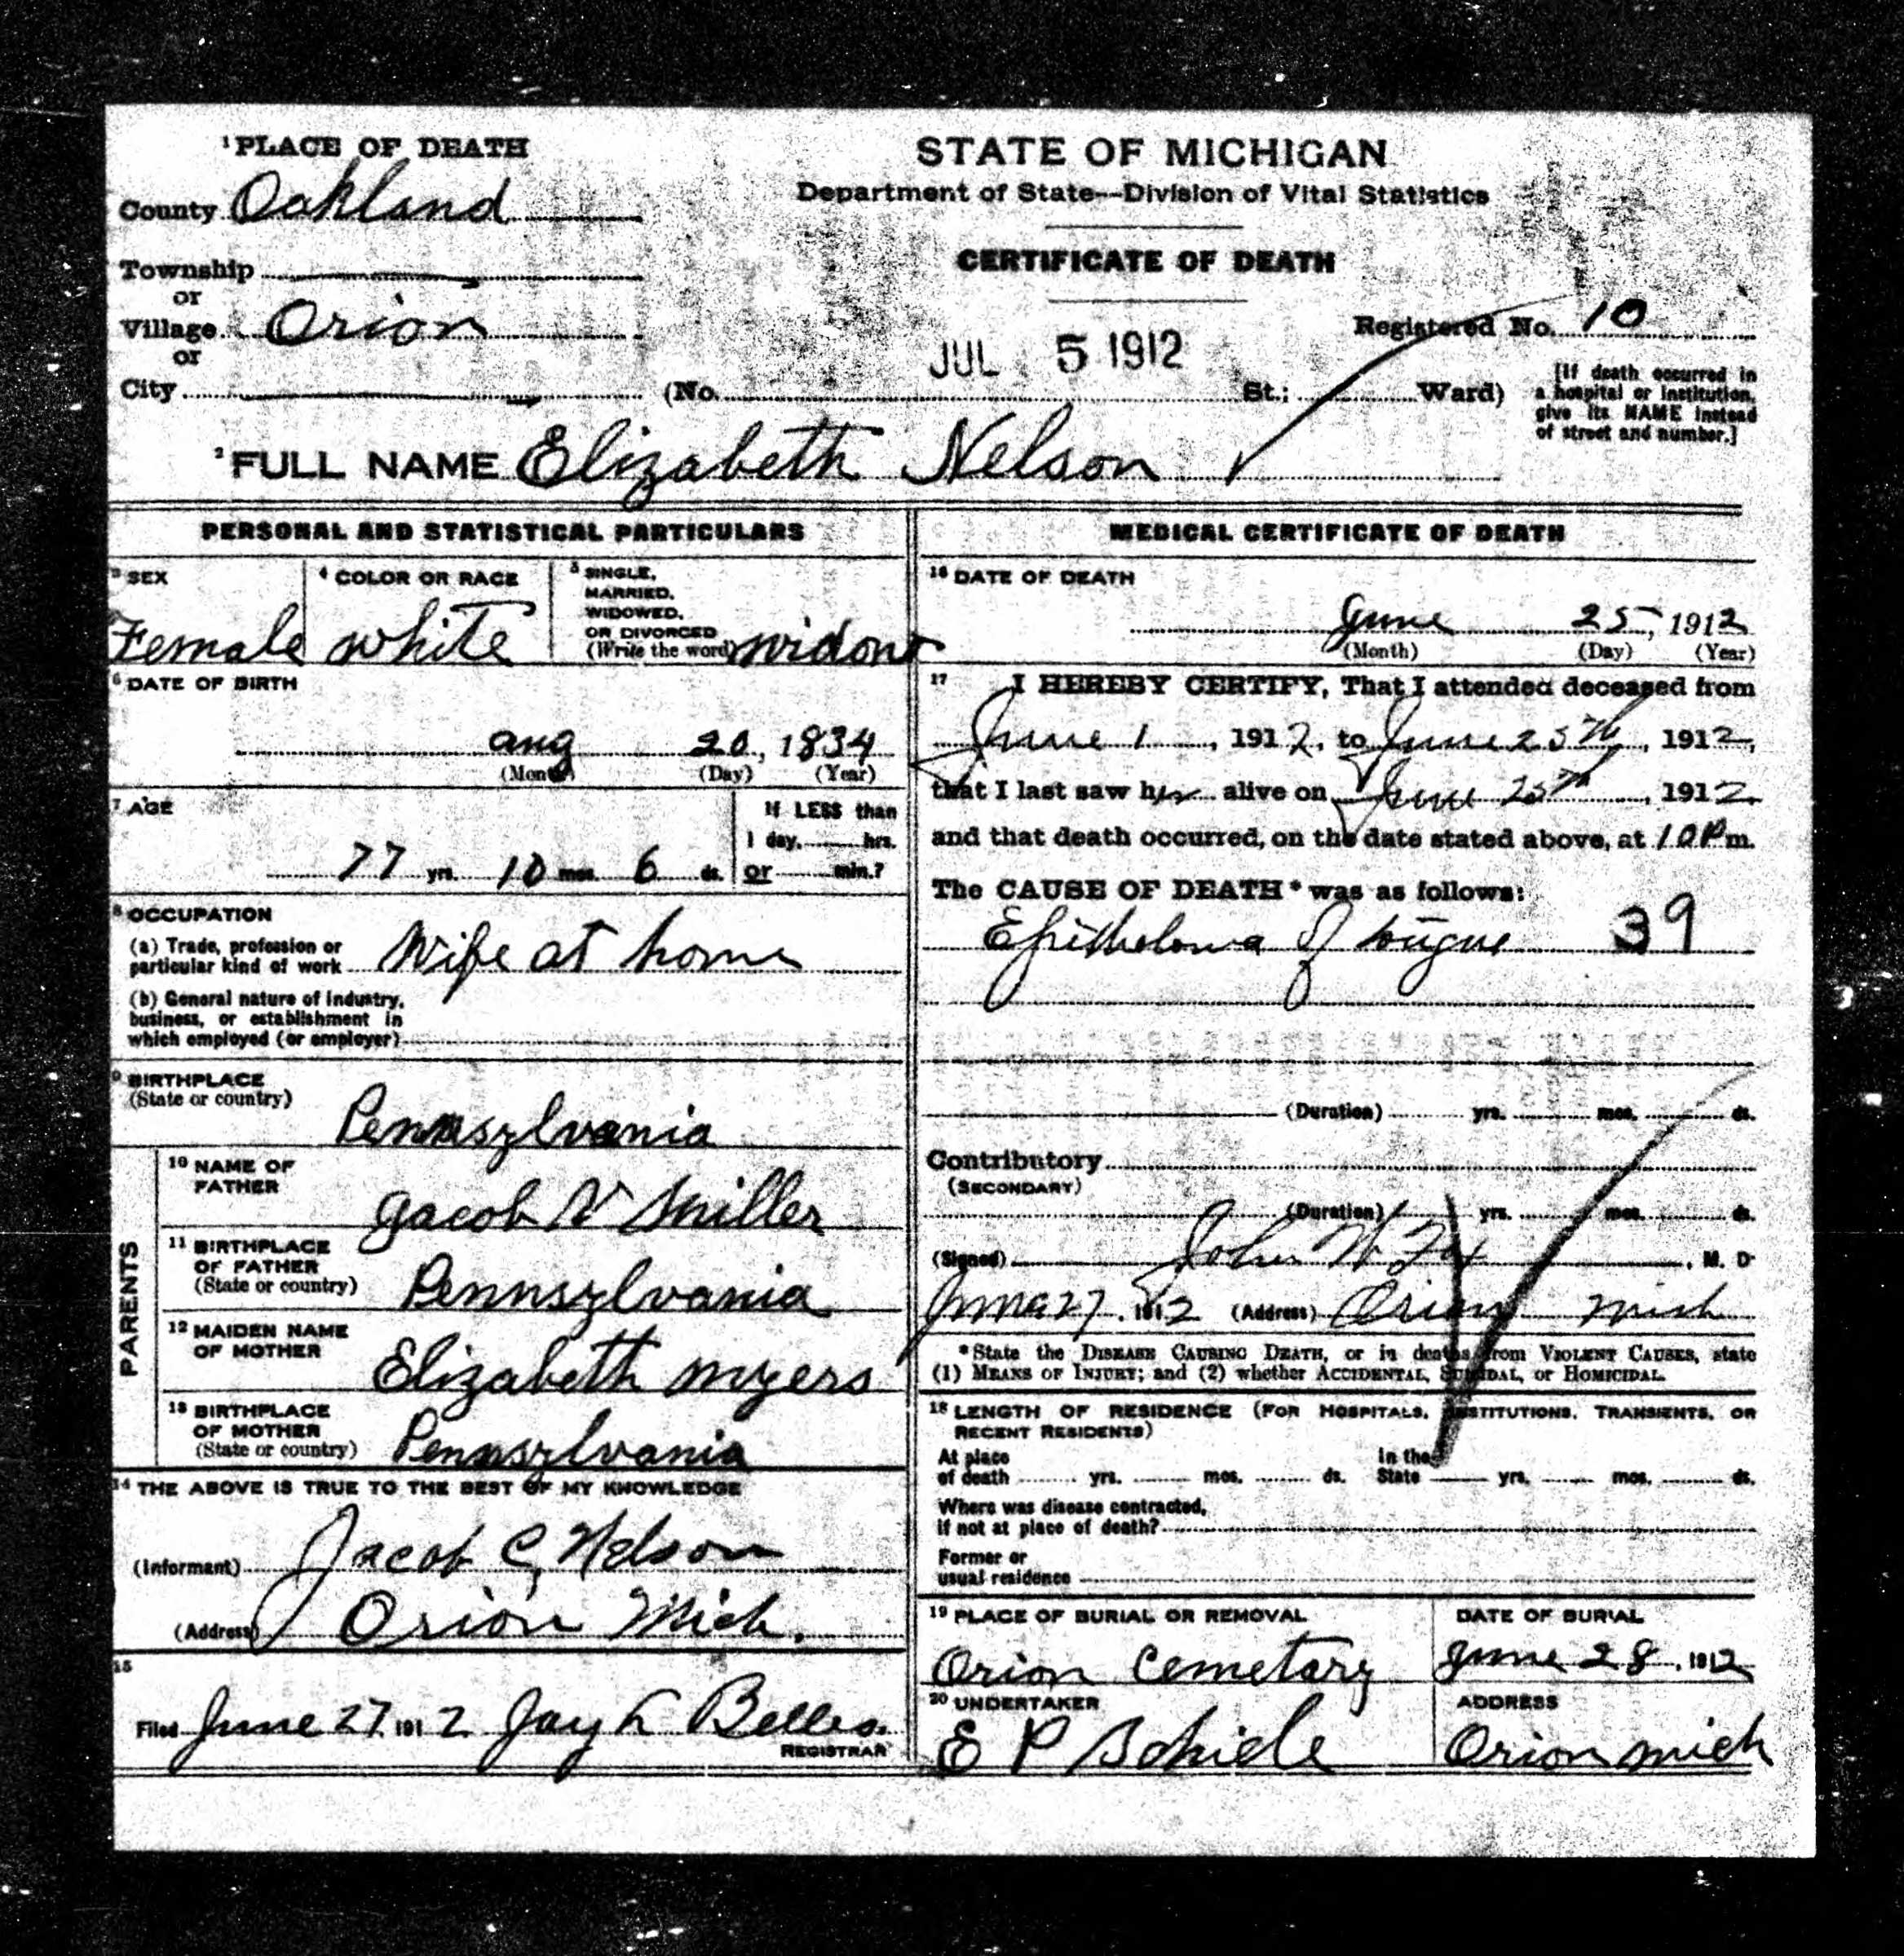 1 PLACE OF DEATH
County Oakland
Township
or
Village Orion
or
City
STATE OF MICHIGAN
Department of State--Division of Vital Statistics
CERTIFICATE OF DEATH
Registered No. 10
JUL 5 1912
(No. St.; Ward)
[If death occurred in
a hospital or institution,
give its NAME instead
of street and number.]
2 FULL NAME Elizabeth Nelson
PERSONAL AND STATISTICAL PARTICULARS
3 SEX
Female
4 COLOR OR RACE
white
5 SINGLE,
MARRIED,
WIDOWED,
OR DIVORCED
(Write the word) widow
6 DATE OF BIRTH
aug 20, 1834
(Month) (Day) (Year)
7 AGE
77 yrs. 10 mos. 6 ds.
If LESS than
1 day, hrs.
or min.?
8 OCCUPATION
(a) Trade, profession or
particular kind of work Wife at home
(b) General nature of industry,
business, or establishment in
which employed (or employer)
9 BIRTHPLACE
(State or country)
Pennsylvania
PARENTS
10 NAME OF
FATHER
Jacob Miller
11 BIRTHPLACE
OF FATHER
(State or country) Pennsylvania
12 MAIDEN NAME
OF MOTHER
Elizabeth myers
13 BIRTHPLACE
OF MOTHER
(State or country) Pennsylvania
14 THE ABOVE IS TRUE TO THE BEST OF MY KNOWLEDGE
(Informant) Jacob C. Nelson
(Address) Orion Mich.
15
Filed June 27 1912 Jay L Belles.
REGISTRAR
MEDICAL CERTIFICATE OF DEATH
16 DATE OF DEATH
June 25, 1912
(Month) (Day) (Year)
17 I HEREBY CERTIFY, That I attended deceased from
June 1, 1912, to June 25th, 1912,
that I last saw her alive on June 25th, 1912
and that death occurred, on the date stated above, at 10 Pm.
The CAUSE OF DEATH* was as follows:
Epithelioma of tongue 39
(Duration) yrs. mos. ds.
Contributory
(SECONDARY)
(Duration) yrs. mos. ds.
(Signed) John W Fox, M. D
June 27, 1912 (Address) Orion Mich
*State the DISEASE CAUSING DEATH, or in deaths from VIOLENT CAUSES, state
(1) MEANS OF INJURY; and (2) whether ACCIDENTAL, SUICIDAL, or HOMICIDAL.
18 LENGTH OF RESIDENCE (FOR HOSPITALS, INSTITUTIONS, TRANSIENTS, OR
RECENT RESIDENTS)
At place
of death yrs. mos. ds.
In the
State yrs. mos. ds.
Where was disease contracted,
if not at place of death?
Former or
usual residence
19 PLACE OF BURIAL OR REMOVAL
Orion Cemetary
DATE OF BURIAL
June 28, 1912
20 UNDERTAKER
E P Schiele
ADDRESS
Orion mich